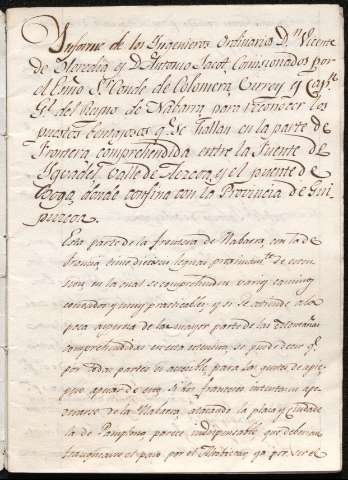 Informe de los Ingenieros Ordinarios D.n Vicente
de Heredia y D.n Antonio Jacot, Comisionados por
el Exmo S.r Conde de Colomera, Virrey y Cap.n
G.l del Reyno de Nabarra para reconocer los
puestos bentajosos q.e se hallan en la parte de
Frontera comprehendida entre la Fuente de
Yguadel, Valle de Aezcoa, y el puente de
donde confina con la Provincia de Gui
puzcoa.
Esta parte de la frontera de Nabarra con la de
Francia tiene leguas proximam.te de exten
sion, en la cual se comprehenden varios caminos
conocidos y muy practicables, y si se atiende a la
poca aspereza de la mayor parte de las montañas
comprehendidas en esta estension, se puede decir q.e
por todas partes es accesible, para las gentes de a pie,
que apesar de esto, si los franceses intentaran ape
rarse de la Nabarra, atacando la plaza y Ciudade
la de Pamplona, parece indispensable, que deberian
franquearse el paso por el ya por ser el